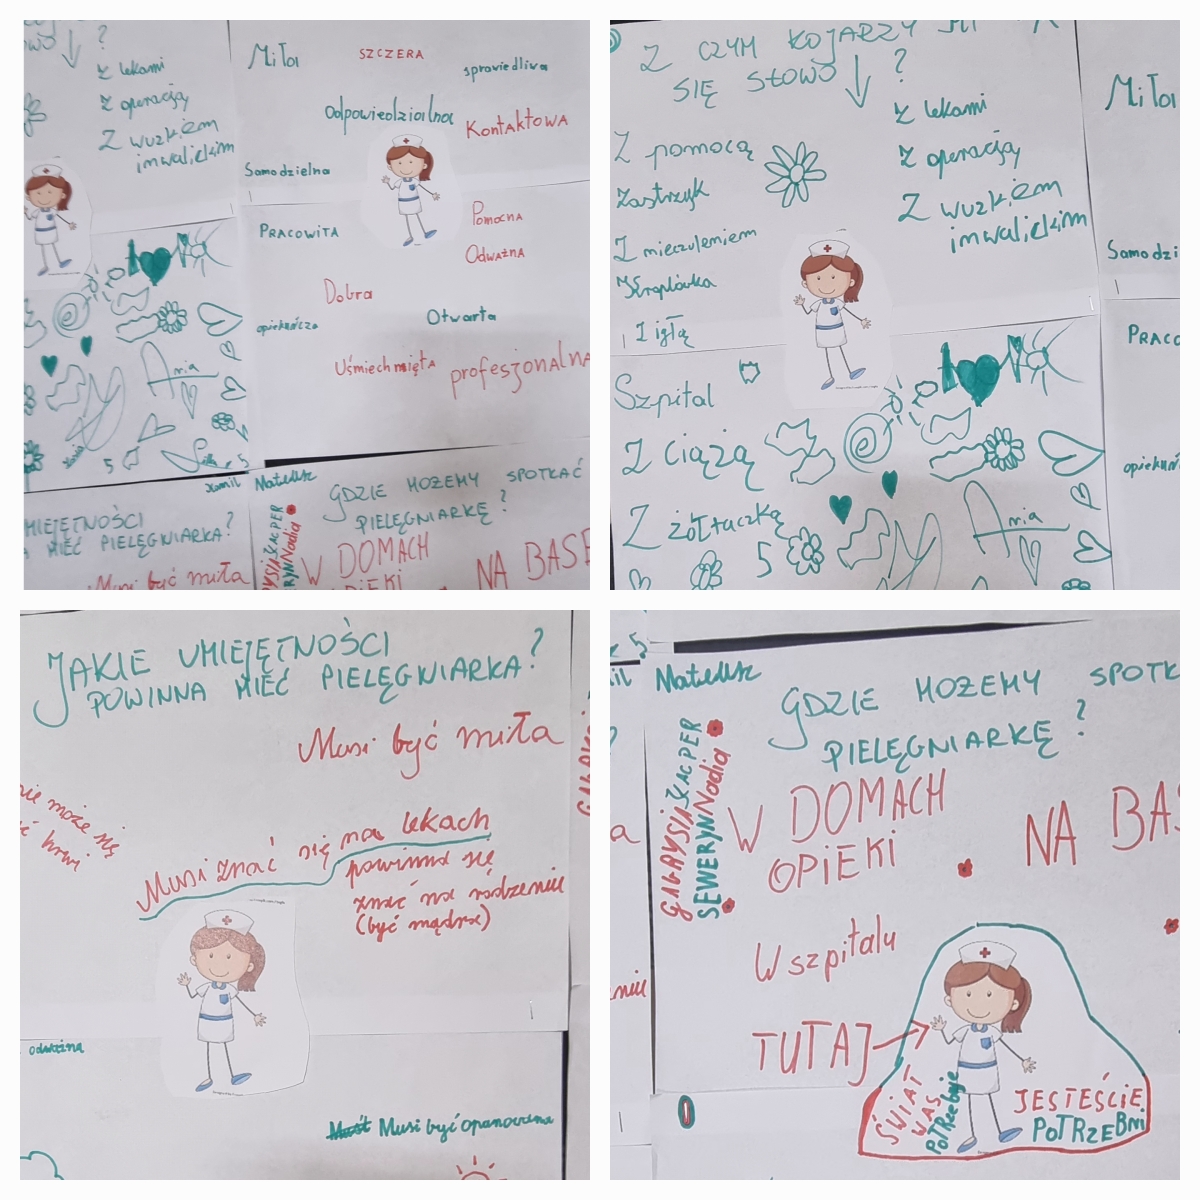 ?
Z lekami
Z operacją
Z wuzkiem
inwalickim
Miła
SZCZERA
sprawiedliwa
Odpowiedzialna
KontaktOWA
Samodzielna
PRACOWITA
Pomocna
OdwAżNA
Dobra
opiekuńcza
Otwarta
Uśmiechnięta
profesjonalna
Ania
5
Kamil
Mateusz
UMIEJĘTNOŚCI
MIEĆ PIELĘGNIARKA?
Musi być miła
GDZIE MOŻEMY SPOTKAĆ
PIELĘGNIARKĘ?
KACPER
Nadia
W DOMACH
OPIEKI
NA BASE
Z CZYM KOJARZY MI
SIĘ SŁOWO ?
Z pomocą
Zastrzyk
Z mieczuleniem
Kroplówka
Z igłą
Z lekami
Z operacją
Z wuzkiem
inwalickim
Szpital
Z ciążą
Z żółtaczką
5
Ania
Miła
Samodzi
PRACO
opiekuń
JAKIE UMIEJĘTNOŚCI
POWINNA MIEĆ PIELĘGNIARKA?
Musi być miła
nie może się
krwi
Musi znać się na lekach
powinna się
znać na rodzeniu
(być mądra)
odważna
Musi być opanowana
5
Mateusz
GDZIE MOŻEMY SPOTK
PIELĘGNIARKĘ?
GABRYSIA KACPER
SEWERYN Nadia
W DOMACH
OPIEKI
NA BAS
W szpitalu
TUTAJ
ŚWIAT
WAS
POTRzebuje
JESTEŚCIE
POTRZEBNI